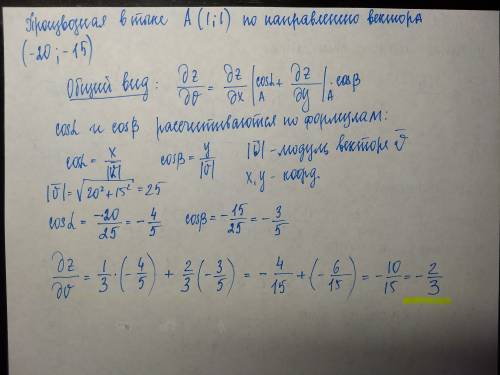 Производная в точке A (1;1) по направлению вектора
(-20; -15)
Общий вид: ∂z/∂v = ∂z/∂x |_A cosα + ∂z/∂y |_A · cosβ
cosα и cosβ рассчитываются по формулам:
cosα = x/|v̄| cosβ = y/|v̄| |v̄| - модуль вектора v̄
|v̄| = √(20² + 15²) = 25 x, y - коорд.
cosα = -20/25 = -4/5 cosβ = -15/25 = -3/5
∂z/∂v = 1/3 · (-4/5) + 2/3 (-3/5) = -4/15 + (-6/15) = -10/15 = -2/3